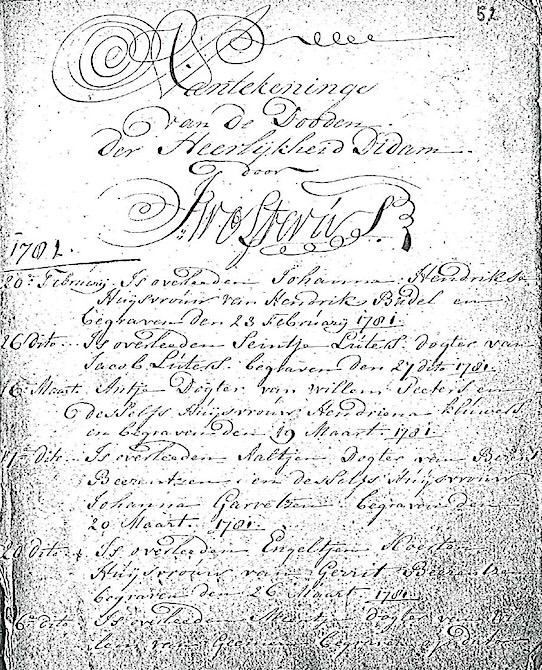 52
Aantekeninge
van de Dooden
der Heerlijkheid Didam
door
1781.
20 Februarij Is overleeden Johanna Hendriks
Huijsvrouw van Hendrik Budel en
begraven den 23 Februarij 1781.
26 dito Is overleeden Seintje Lutess dogter van
Jacob Lutess begraven den 27 dito 1781.
16 Maart Antje Dogter van Willem Peeters en
desselfs Huijsvrouw Hendriena
en begraven den 19 Maart 1781
17 dito Is overleeden Aaltjen Dogter van
Beerentzen en desselfs Huijsvrouw
Johanna Garretzen begraven den
20 Maart 1781.
dito Is overleeden Engeltjen
Huijsvrouw van Gerrit
begraven den 26 Maart 1781
26 dito Is overleeden dogter van
van dito